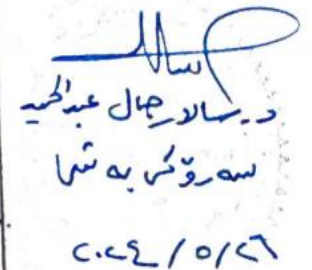 د. سالار جمال عبدالحميد
سەرۆکی بەش
٢٠٢٤/٥/٢٦